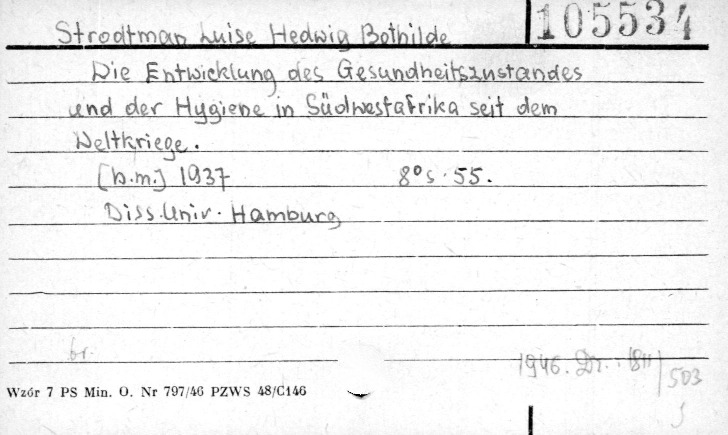 105534
Strodtman Luise Hedwig Bothilde
Die Entwicklung des Gesundheitszustandes
und der Hygiene in Südwestafrika seit dem
Weltkriege.
[b.m.] 1937 8° s. 55.
Diss. Univ. Hamburg
br.
1946. Dr. 503
Wzór 7 PS Min. O. Nr 797/46 PZWS 48/C146